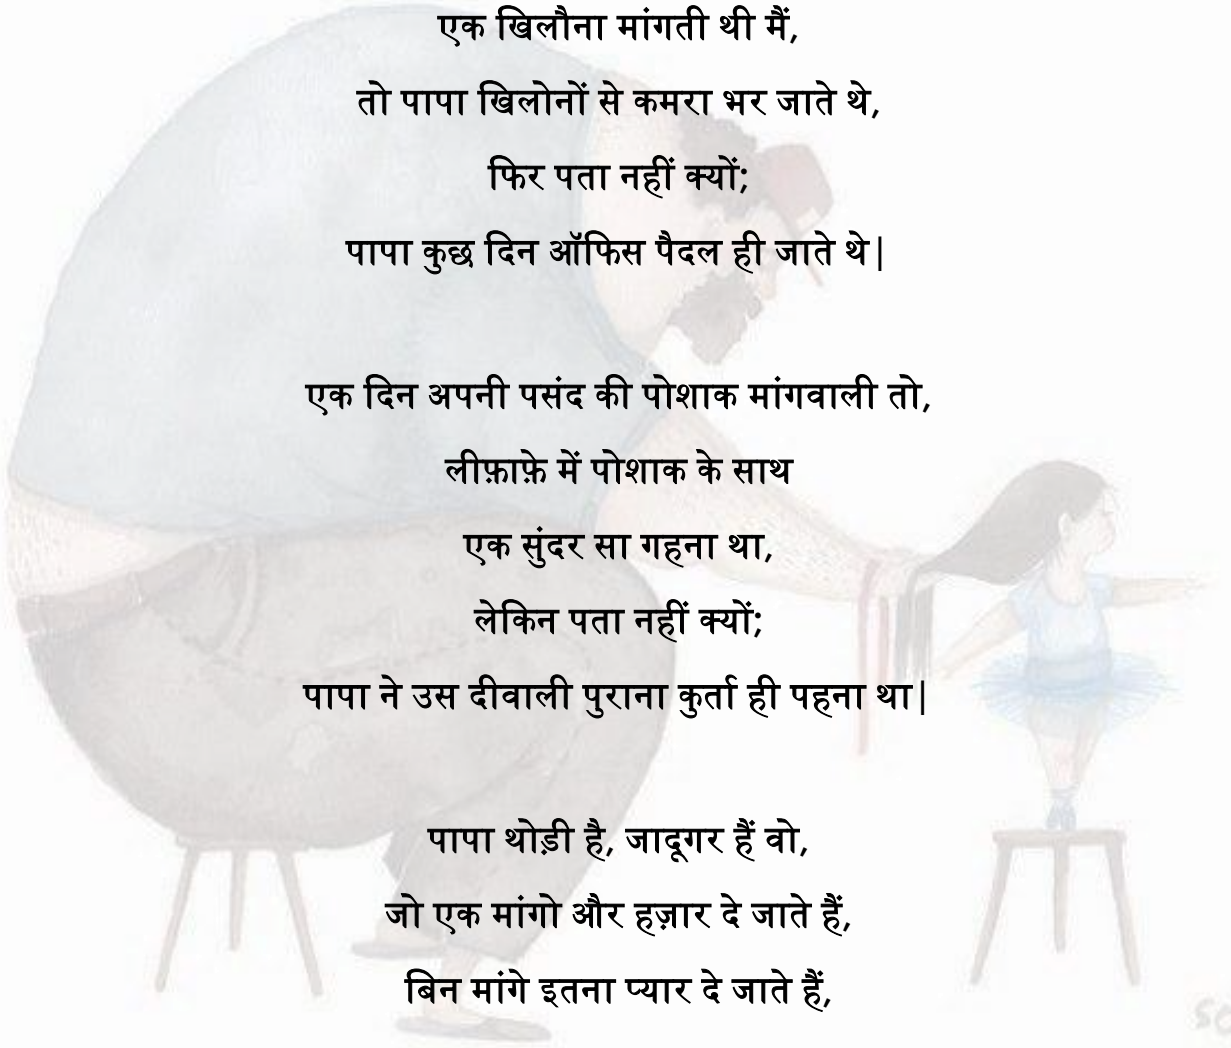 एक खिलौना मांगती थी मैं,
तो पापा खिलोनों से कमरा भर जाते थे,
फिर पता नहीं क्यों;
पापा कुछ दिन ऑफिस पैदल ही जाते थे|
एक दिन अपनी पसंद की पोशाक मांगवाली तो,
लीफ़ाफ़े में पोशाक के साथ
एक सुंदर सा गहना था,
लेकिन पता नहीं क्यों;
पापा ने उस दीवाली पुराना कुर्ता ही पहना था|
पापा थोड़ी है, जादूगर हैं वो,
जो एक मांगो और हज़ार दे जाते हैं,
बिन मांगे इतना प्यार दे जाते हैं,